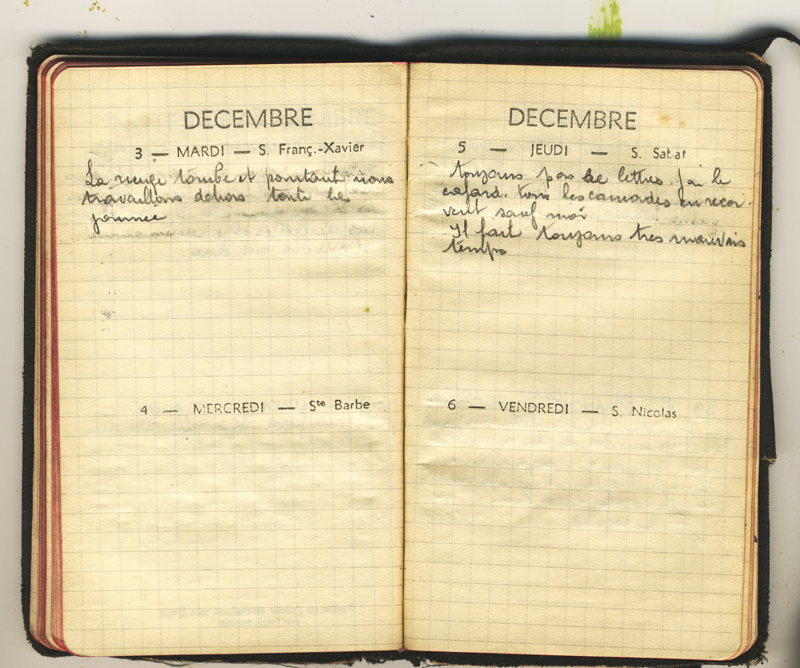 DECEMBRE
3 — MARDI — S. Franç.-Xavier
La neige tombe et pourtant nous
travaillons dehors toute la
journee
4 — MERCREDI — Ste Barbe
DECEMBRE
5 — JEUDI — S. Sabat
toujours pas de lettres. j'ai le
cafard. tous les camarades en recoi-
vent sauf moi
Il fait toujours tres mauvais
temps
6 — VENDREDI — S. Nicolas